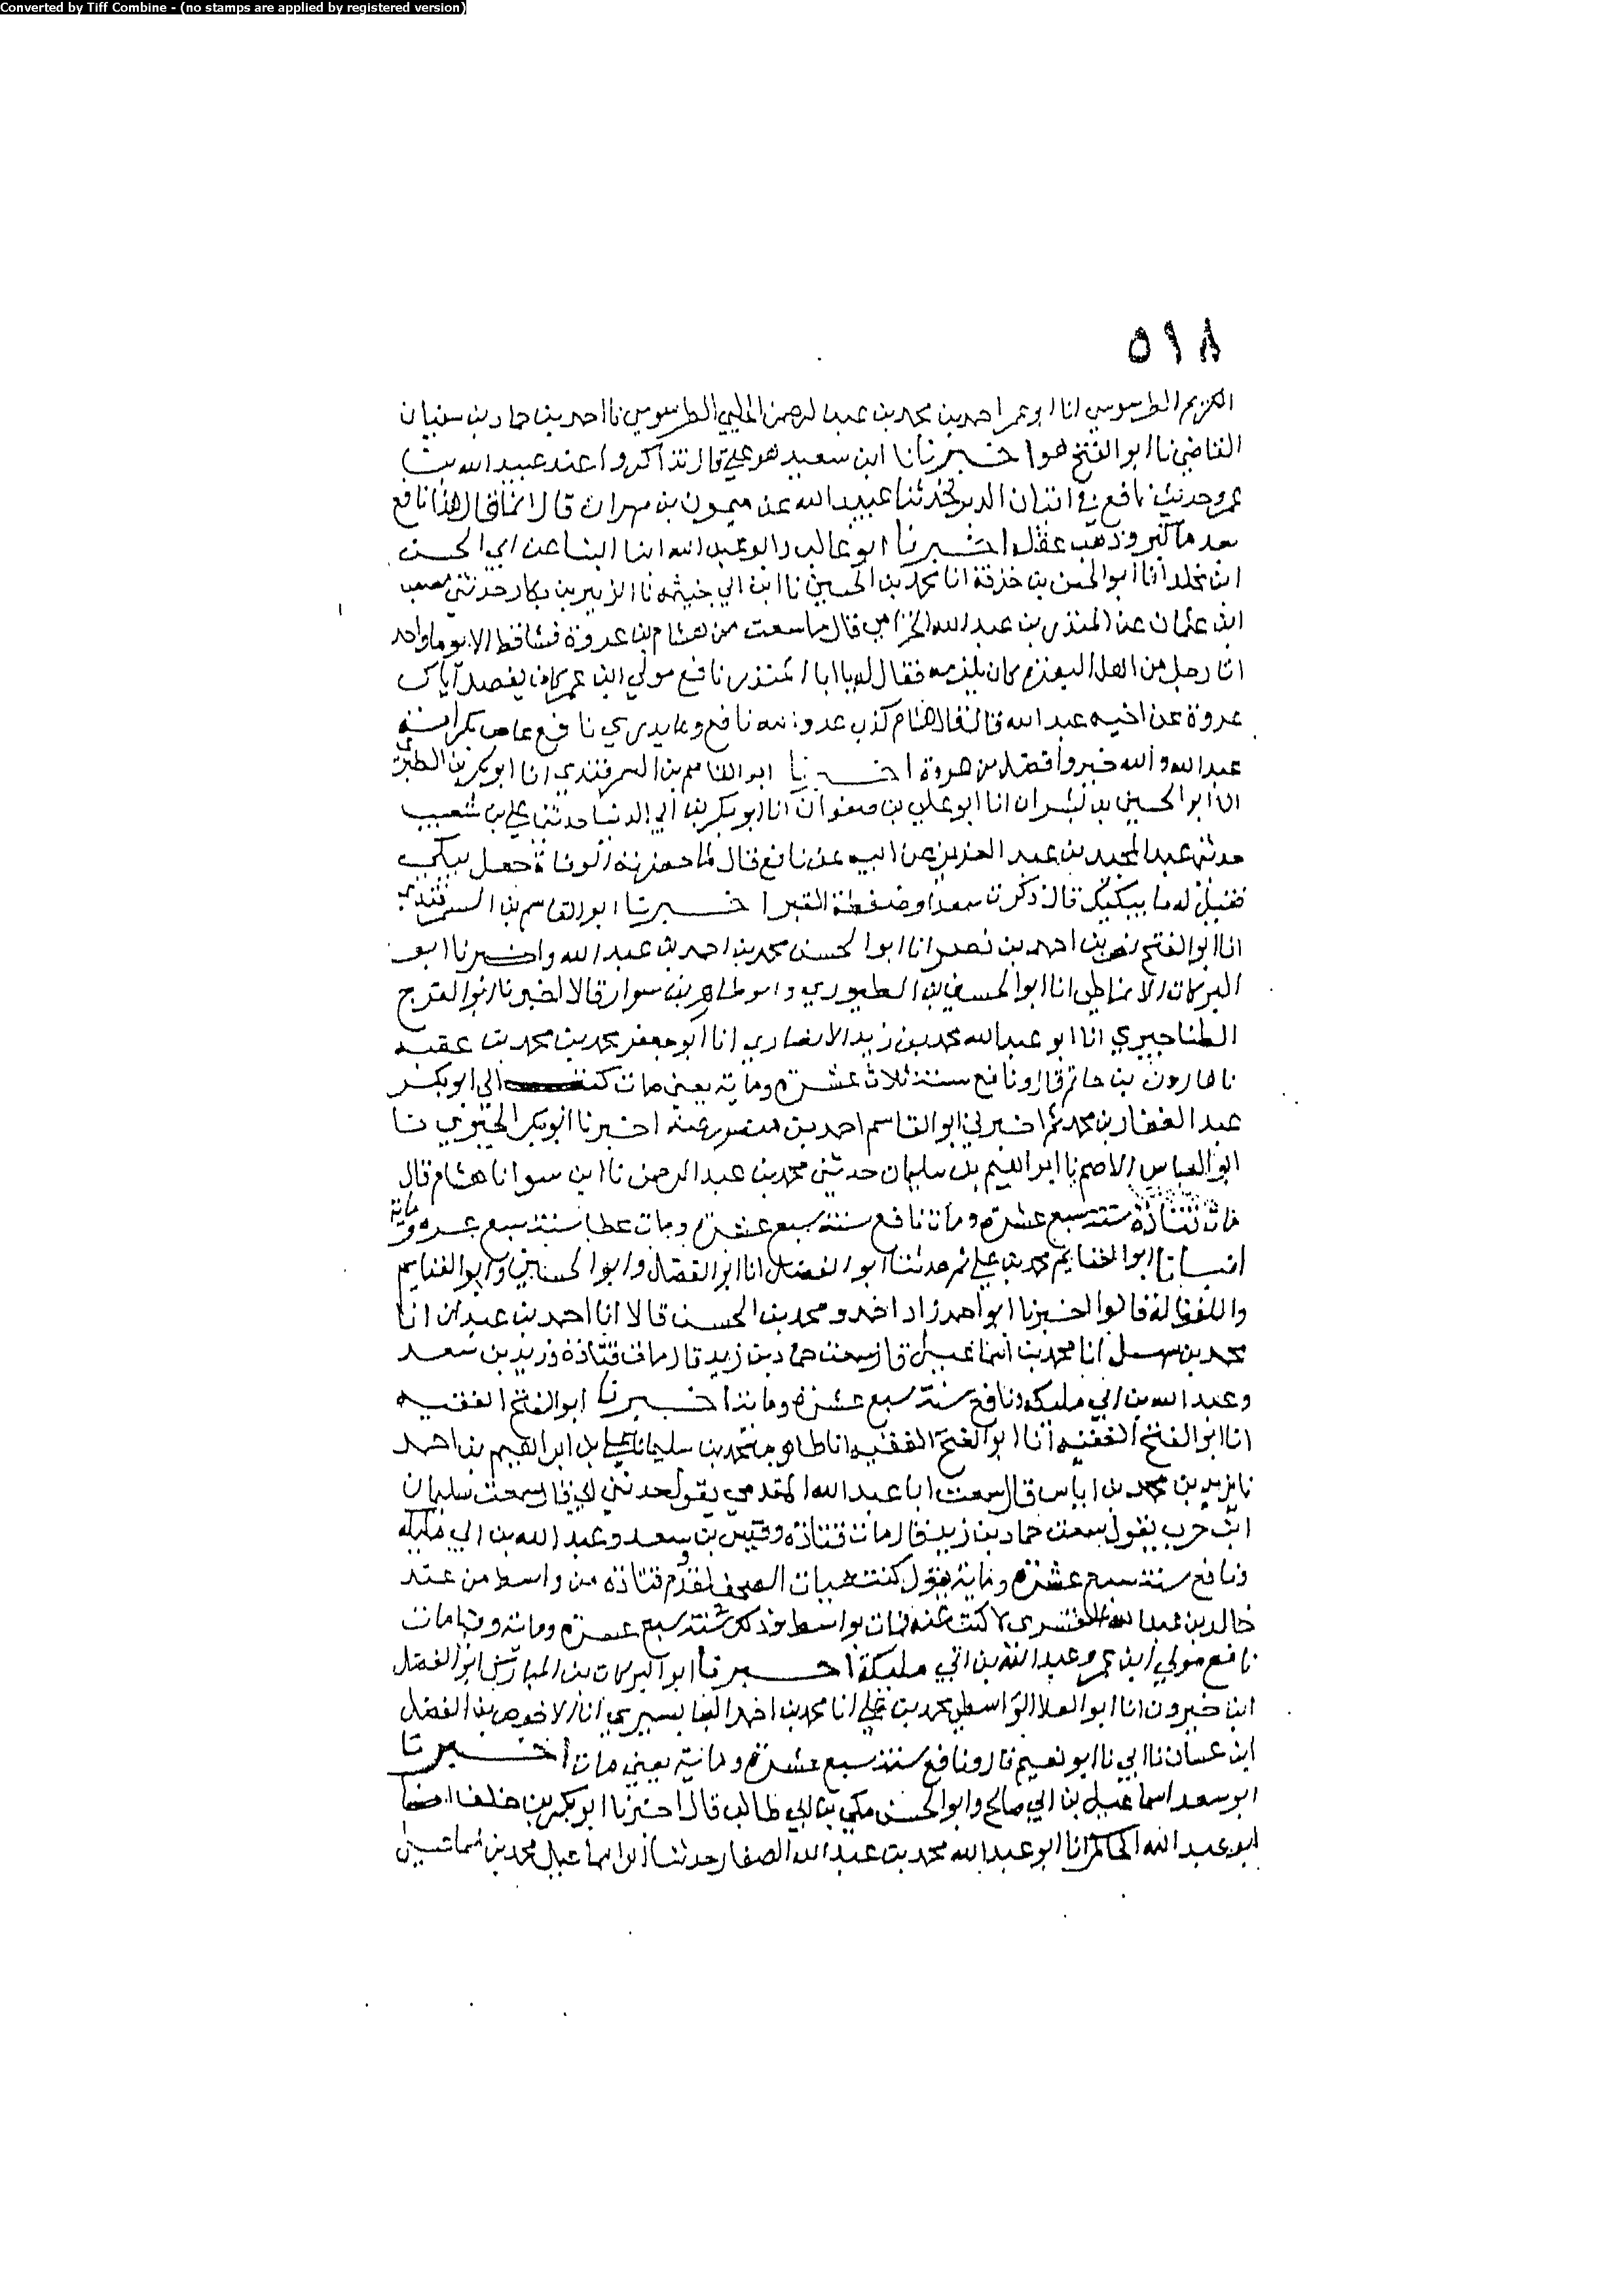 Converted by Tiff Combine - (no stamps are applied by registered version)
٥٩٨
الكريم الطرسوسي انا ابو عمر احمد بن محمد بن عبد الرحمن الحلبي الطرسوسي نا احمد بن حماد بن سفيان
القاضي نا ابو الفتح هو اخبرنا نا ابن سعيد هو علي قال تذاكروا عند عبيد الله بن
عمر وحديث نافع في اتيان الدبر فحدثنا عبيد الله عن ميمون بن مهران قال انما قال هذا نافع
بعد ما كبر وذهب عقله اخبرنا ابو غالب وابو عبد الله ابنا البنا عن ابي الحسن
ابن مخلد انا ابو الحسن بن خزفة انا محمد بن الحسين نا ابن ابي خيثمة نا الزبير بن بكار حدثني مصعب
ابن عثمان عن المنذر بن عبد الله الحزامي قال ما سمعت من هشام بن عروة قط الا يوما واحد
انا رجل من اهل كان يلزمه فقال له يا ابا المنذر نافع مولي ابن عمر كان يفضل اباك
عروة عن اخيه عبد الله قال فقال هشام كذب عدو الله نافع وما يدري نافع
عبد الله والله خير وافضل من عروة اخبرنا ابو القاسم بن السمرقندي انا ابو بكر بن الطبري
انا ابو الحسين بن بشران انا ابو علي بن صفوان انا ابو بكر بن ابي الدنيا حدثني علي بن شعيب
حدثني عبد المجيد بن عبد العزيز عن ابيه عن نافع قال لما حضرته الوفاة جعل يبكي
فقيل له ما يبكيك قال ذكرت سعدا وضغطة القبر اخبرنا ابو القاسم بن السمرقندي
انا ابو الفتح نصر بن احمد بن نصر انا ابو الحسن محمد بن احمد بن عبد الله واخبرنا ابو
البركات الانماطي انا ابو الحسين بن الطيوري وابو طاهر بن سوار قالا اخبرنا ابو الفرج
الطناجيري انا ابو عبد الله محمد بن زيد الانصاري انا ابو جعفر محمد بن محمد بن عقبه
نا هارون بن حاتم قال ونافع سنة ثلاث عشرة وماية يعني مات كتب الي ابو بكر
عبد الغفار بن محمد ثم اخبرني ابو القاسم احمد بن منصور عنه اخبرنا ابو بكر الحيري نا
ابو العباس الاصم نا ابراهيم بن سليمان حدثني محمد بن عبد الرحمن نا ابن سوا نا هشام قال
مات قتادة سنة سبع عشرة ومات نافع سنة سبع عشرة ومات عطا سنة سبع عشره وماية
انبانا ابو الغنايم محمد بن علي ثم حدثنا ابو الفضل انا ابو الفضل وابو الحسين وابو الغنايم
واللفظ له قالوا اخبرنا ابو احمد زاد احمد ومحمد بن الحسن قالا انا احمد بن عبدان انا
محمد بن سهل انا محمد بن اسماعيل قال سمعت حماد بن زيد قال مات قتادة وزيد بن سعد
وعبد الله بن ابي مليكه ونافع سنة سبع عشرة وماية اخبرنا ابو الفتح الفقيه
انا ابو الفتح الفقيه انا ابو الفتح الفقيه انا طاهر بن محمد بن سليمان نا علي بن ابراهيم بن احمد
نا يزيد بن محمد بن اياس قال سمعت ابا عبد الله المقدمي يقول حدثني ابي قال سمعت سليمان
ابن حرب يقول سمعت حماد بن زيد قال مات قتادة وقيس بن سعد وعبد الله بن ابي مليكه
ونافع سنة سبع عشرة وماية يقول كنت هيات الصحف لقدوم قتادة من واسط من عند
خالد بن عبد الله القسري لاكتب عنه فمات بواسط وذلك سنة سبع عشرة وماية وفيها مات
نافع مولي ابن عمر وعبد الله بن ابي مليكة اخبرنا ابو البركات بن المبارك نا ابو الفضل
ابن خيرون انا ابو العلا الواسطي محمد بن علي انا محمد بن احمد البابسيري انا الاحوص بن الفضل
ابن غسان نا ابي نا ابو نعيم قال ونافع سنة سبع عشرة وماية يعني مات اخبرنا
ابو سعد اسماعيل بن ابي صالح وابو الحسن مكي بن ابي طالب قالا اخبرنا ابو بكر بن خلف انا
ابو عبد الله الحاكم انا ابو عبد الله محمد بن عبد الله الصفار حدثنا ابو اسماعيل محمد بن اسماعيل